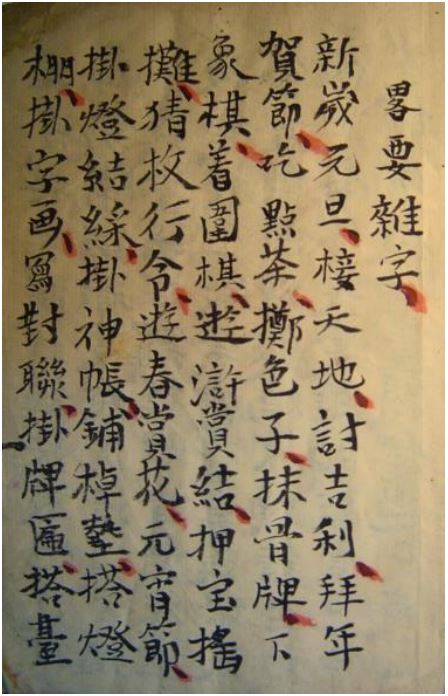 畧要雜字
新歲元旦接天地討吉利拜年
賀節吃點茶擲色子抹骨牌下
象棋着圍棋遊滸賞結押宝搖
攤猜枚行令遊春賞花元宵節
掛燈結綵掛神帳鋪棹墊搭燈
棚掛字画冩對聯掛牌匾搭臺